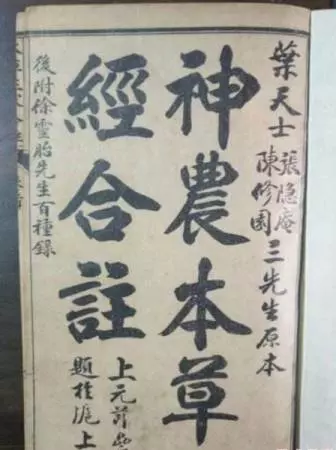 葉天士
張隐庵
陳修園
三先生原本
神農本草
經合註
上元
題於滬上
後附徐靈胎先生百種錄